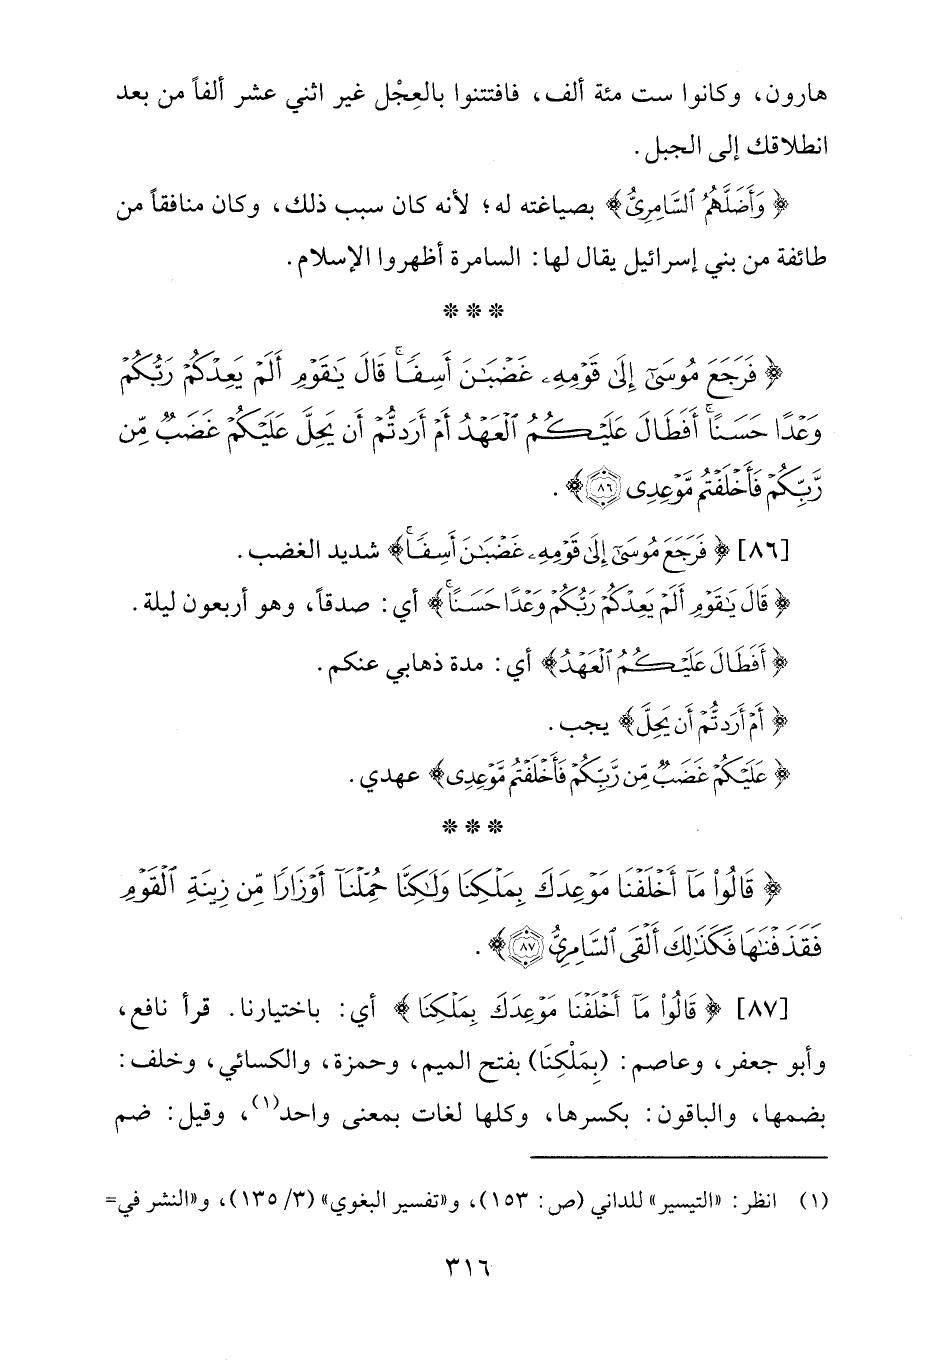 هارون، وكانوا ست مئة ألف، فافتتنوا بالعِجْل غير اثني عشر ألفاً من بعد
انطلاقك إلى الجبل.
﴿ وَأَضَلَّهُمُ ٱلسَّامِرِيُّ﴾ بصياغته له؛ لأنه كان سبب ذلك، وكان منافقاً من
طائفة من بني إسرائيل يقال لها: السامرة أظهروا الإسلام.
* * *
﴿ فَرَجَعَ مُوسَىٰٓ إِلَىٰ قَوْمِهِۦ غَضْبَٰنَ أَسِفًاۚ قَالَ يَٰقَوْمِ أَلَمْ يَعِدْكُمْ رَبُّكُمْ
وَعْدًا حَسَنًاۚ أَفَطَالَ عَلَيْكُمُ ٱلْعَهْدُ أَمْ أَرَدتُّمْ أَن يَحِلَّ عَلَيْكُمْ غَضَبٌ مِّن
رَّبِّكُمْ فَأَخْلَفْتُم مَّوْعِدِى ٨٦﴾.
[٨٦] ﴿ فَرَجَعَ مُوسَىٰٓ إِلَىٰ قَوْمِهِۦ غَضْبَٰنَ أَسِفًاۚ﴾ شديد الغضب.
﴿ قَالَ يَٰقَوْمِ أَلَمْ يَعِدْكُمْ رَبُّكُمْ وَعْدًا حَسَنًاۚ﴾ أي: صدقاً، وهو أربعون ليلة.
﴿ أَفَطَالَ عَلَيْكُمُ ٱلْعَهْدُ﴾ أي: مدة ذهابي عنكم.
﴿ أَمْ أَرَدتُّمْ أَن يَحِلَّ﴾ يجب.
﴿ عَلَيْكُمْ غَضَبٌ مِّن رَّبِّكُمْ فَأَخْلَفْتُم مَّوْعِدِى﴾ عهدي.
* * *
﴿ قَالُوا۟ مَآ أَخْلَفْنَا مَوْعِدَكَ بِمَلْكِنَا وَلَٰكِنَّا حُمِّلْنَآ أَوْزَارًا مِّن زِينَةِ ٱلْقَوْمِ
فَقَذَفْنَٰهَا فَكَذَٰلِكَ أَلْقَى ٱلسَّامِرِيُّ ٨٧﴾.
[٨٧] ﴿ قَالُوا۟ مَآ أَخْلَفْنَا مَوْعِدَكَ بِمَلْكِنَا ﴾ أي: باختيارنا. قرأ نافع،
وأبو جعفر، وعاصم: (بِمَلْكِنَا) بفتح الميم، وحمزة، والكسائي، وخلف:
بضمها، والباقون: بكسرها، وكلها لغات بمعنى واحد(١)، وقيل: ضم
(١) انظر: «التيسير» للداني (ص: ١٥٣)، و«تفسير البغوي» (٣/ ١٣٥)، و«النشر في=
٣١٦